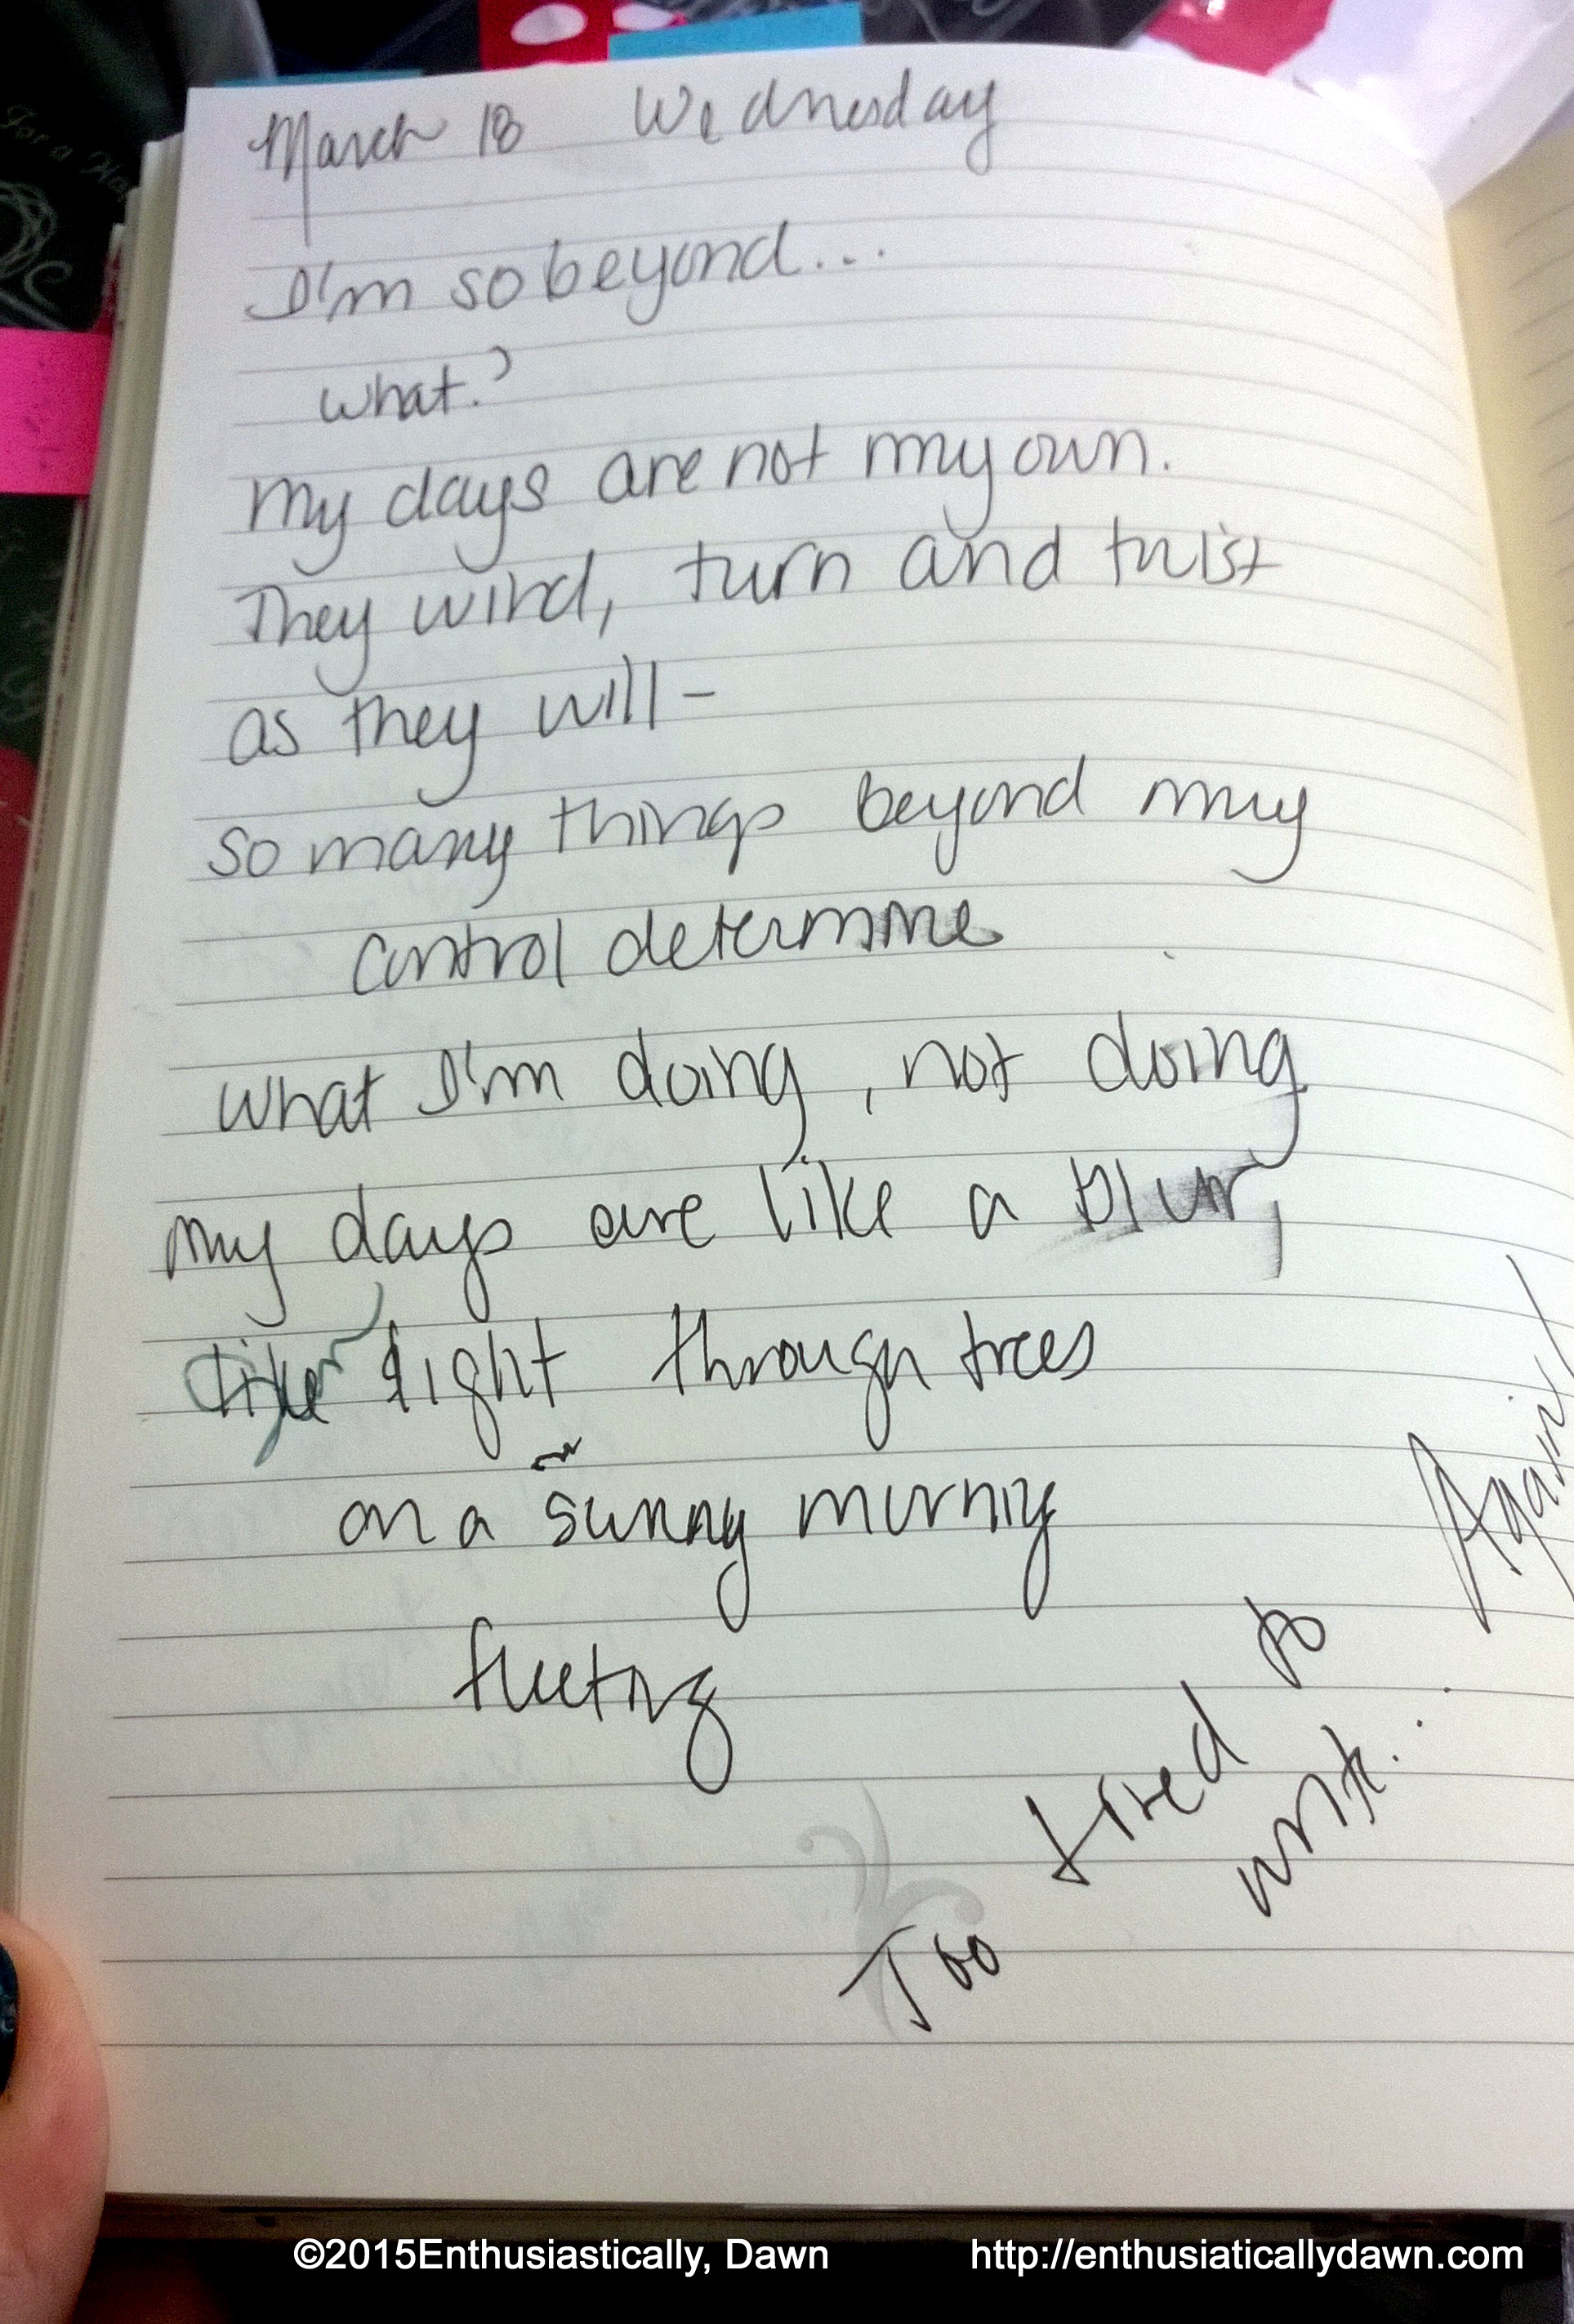 March 18 Wednesday
I'm so beyond...
what?
My days are not my own.
They wind, turn and twist
as they will -
so many things beyond my
control determine
what I'm doing, not doing
my days are like a blur,
like light through trees
on a sunny morning
fleeting
Too tired to
write...
Again!
©2015Enthusiastically, Dawn http://enthusiaticallydawn.com